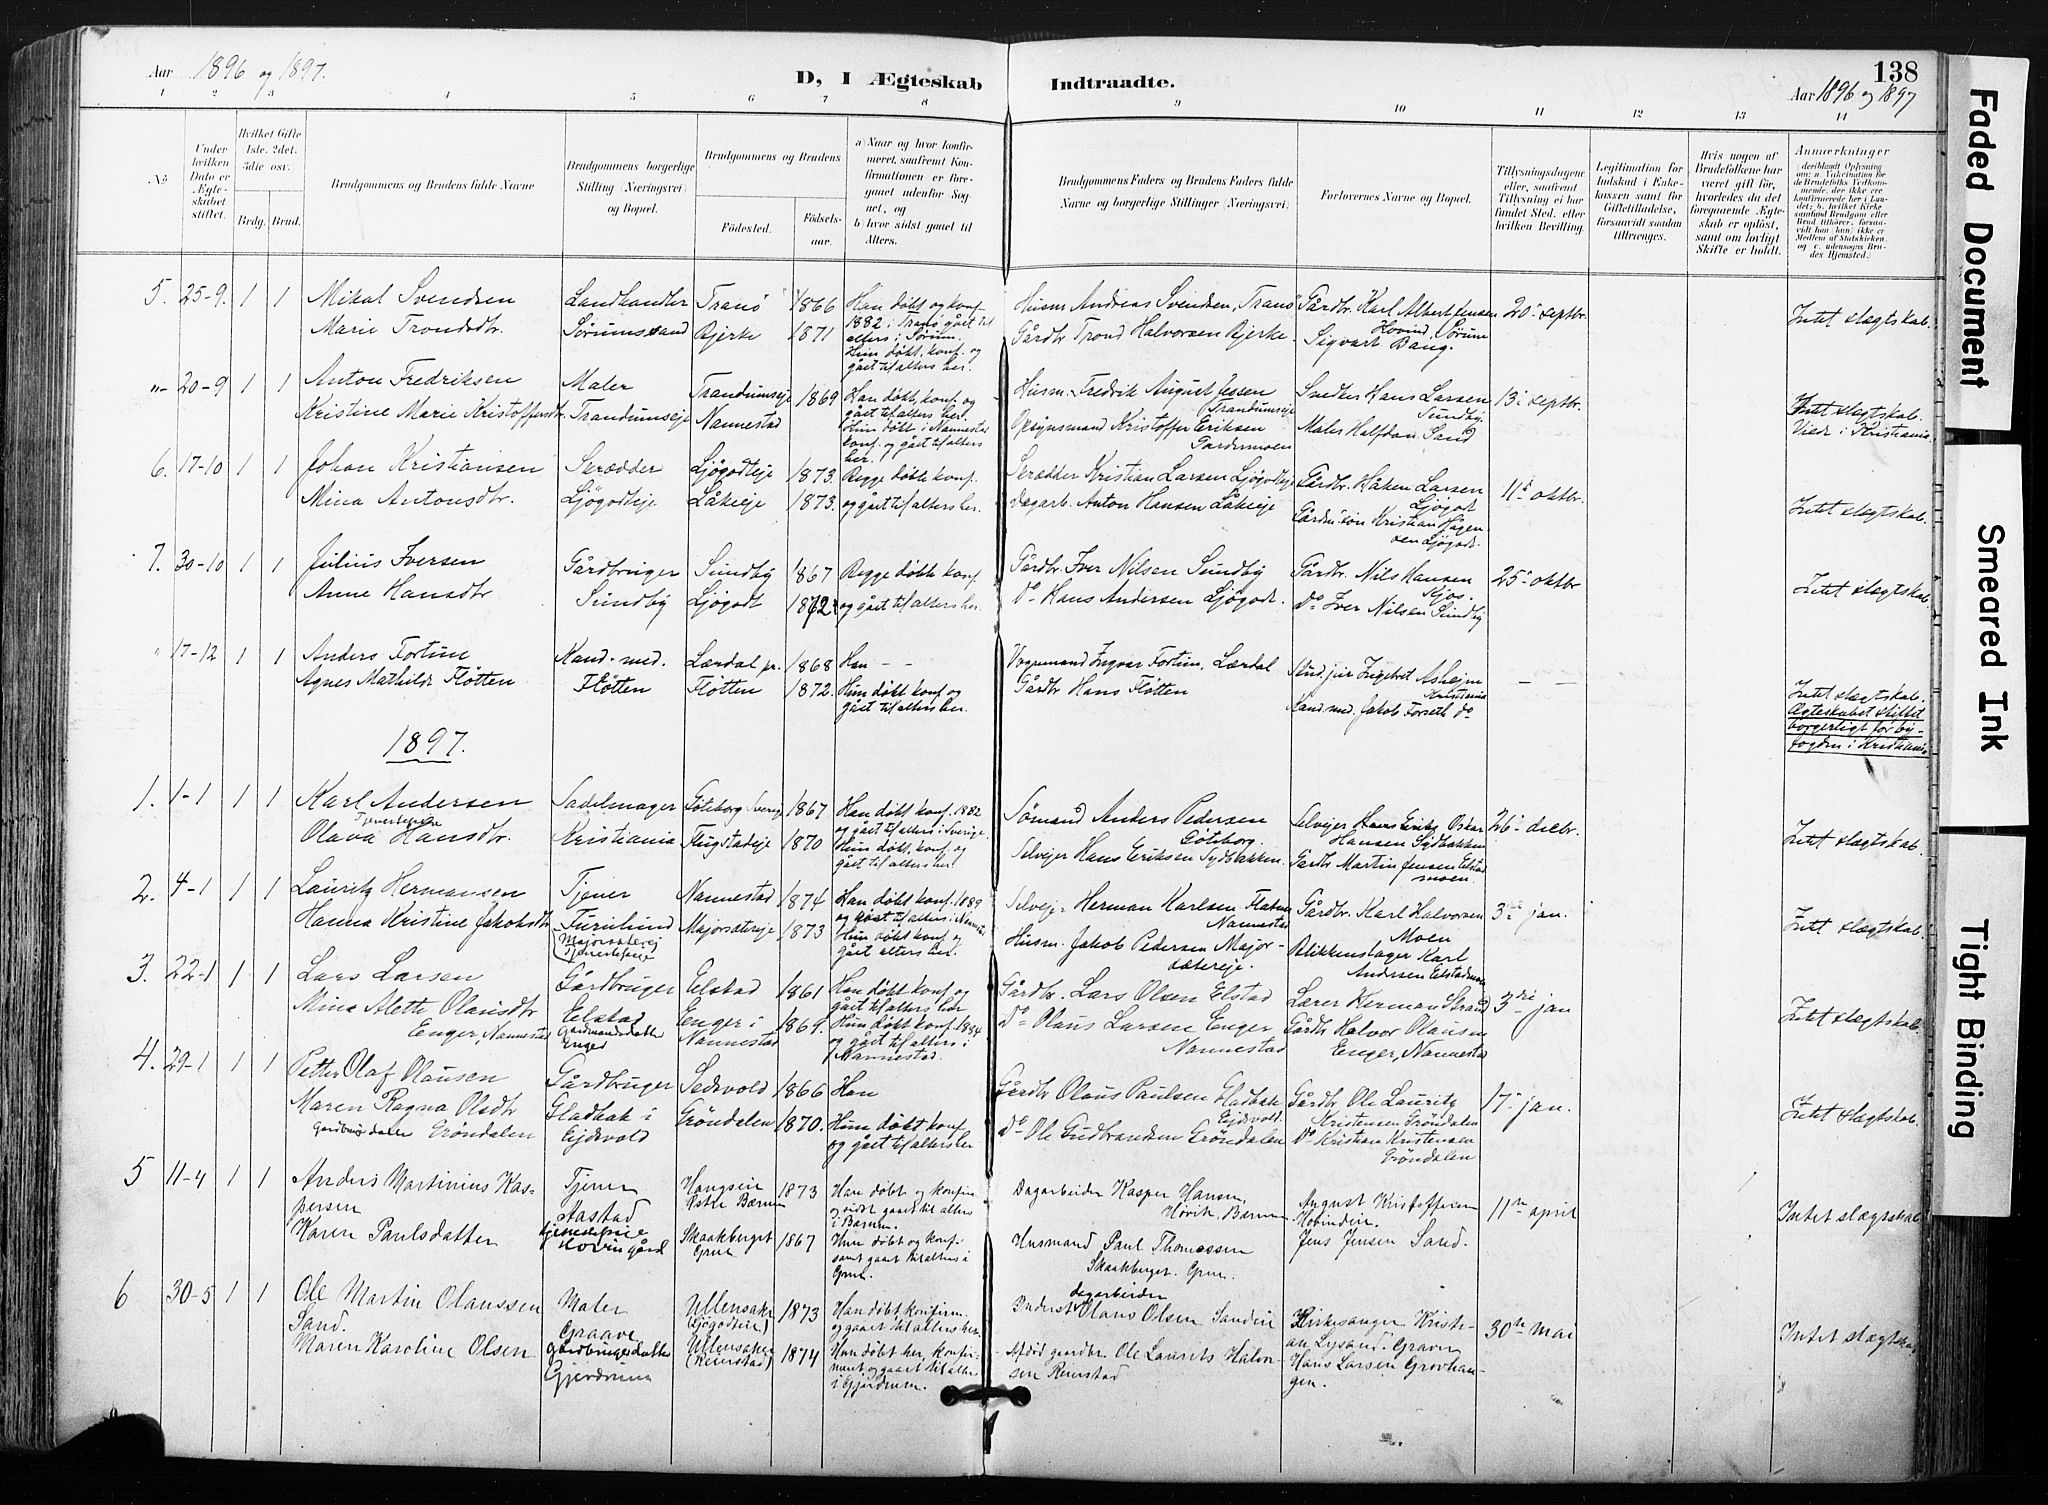 Aar 1896 og 1897.
D, I Ægteskab Indtraadte.
138
Aar 1896 og 1897
1 2 3 4 5 6 7 8 9 10 11 12 13 14
No
Under hvilken Dato er Ægteskabet stiftet.
Hvilket Gifte 1ste. 2det. 3die osv.
Brdg. Brud.
Brudgommens og Brudens fulde Navne
Brudgommens borgerlige Stilling (Næringsvei) og Bopæl.
Brudgommens og Brudens
Fødested.
Fødselsaar.
a) Naar og hvor konfirmeret, saafremt Konfirmationen er foregaaet udenfor Sognet, og
b) hvor sidst gaaet til Alters.
Brudgommens Faders og Brudens Faders fulde Navne og borgerlige Stillinger (Næringsvei)
Forlovernes Navne og Bopæl.
Tillysningsdagene eller, saafremt Tillysning ei har fundet Sted, efter hvilken Bevilling.
Legitimation for Indskud i Enkekassen samt for Giftetilladelse, forsaavidt saadan tiltrænges.
Hvis nogen af Brudefolkene har været gift før, hvorledes da det foregaaende Ægteskab er opløst, samt om lovligt Skifte er holdt.
Anmærkninger
5. 25-9. 1 1 Mikal Svendsen Landhandler Tranö 1866 Han döbt og konf. 1882 i Tranö gået til alters i Sörum. Husm. Andreas Svendsen, Tranö Gårdbr. Karl Albert Jensen Hovind, Sörum 20de septbr. Intet slægtskab.
Marie Trondsdtr. Sörumssand Bjerke 1871 Hun döbt, konf. og gået til alters her. Gårdbr Trond Halvorsen Bjerke Sigvart Bang.
"- 20-9 1 1 Anton Fredriksen Maler Trandumseje 1869 Han döbt, konf. og gået til alters her. Husm. Fredrik August Jessen Trandumseje Snedker Hans Larsen Sundby 13de septbr. Intet slægtskab.
Kristine Marie Kristoffersdtr. Trandumseje Nannestad Hun döbt i Nannestad konf. og gået til alters her. Opsynsmand Kristoffer Eriksen Gardermoen Maler Halfdan Sand Viede i Kristiania
6. 17-10 1 1 Johan Kristiansen Skrædder Ljögodteje 1873. Begge döbt, konf. Skrædder Kristian Larsen Ljögodteje Gårdbr. Håken Larsen Ljögodt 11te oktbr. Intet slægtskab.
Mina Antonsdtr. Ljögodteje Låkeje 1873. og gået til alters her. Dagarb. Anton Hansen Låkeje Gårdm. sön Kristian Hågensen Ljögodt.
7. 30-10 1 1 Julius Iversen Gårdbruger Sundby 1867 Begge döbt, konf. Gårdbr. Iver Nilsen Sundby Gårdbr. Nils Hansen 25de oktbr Intet slægtskab.
Anne Hansdtr Sundby Ljögodt 1872 og gået til alters her. Do Hans Andersen Ljögodt. Do Iver Nilsen Sundby
" 17-12 1 1 Anders Fortun Kand. med. Lærdal pr. 1868 Han - - Vognmand Ingvar Fortun, Lærdal Stud. jur Ingebret Kristiania - -
Agnes Mathilde Flötten Flötten Flötten 1872. Hun döbt konf og gået til alters her. Gårdbr Hans Flötten Kand. med. Jakob Forseth do Intet slægtskab. Ægteskabet stiftet borgerligt for byfogden i Kristiania
1897.
1. 1-1 1 1 Karl Andersen Sadelmager Göteborg Sverige 1867 Han döbt, konf. 1882 og gået til alters i Sverige. Sömand Anders Pedersen Göteborg. Selvejer Oskar Hansen Sydbakken 26de decbr. Intet slægtskab.
Tjenestepige Olava Hansdtr. Kristiania 1870 Hun döbt, konf. og gået til alters her. Selvejer Hans Eriksen Sydbakken. Gårdbr Martin Jensen Elstadmoen.
2. 4-1 1 1 Lauritz Hermansen Tjener Nannestad 1874 Han döbt konf. 1889 og gået til alters i Nannestad Selvejer Herman Karlsen Nannestad Gårdbr. Karl Halvorsen Moen 3die jan. Intet slægtskab.
Hanna Kristine Jakobsdtr. Furulund Majorsætereje Tjenestepige Majorsætereje 1873 Hun döbt, konf. og gået alters her. Husm. Jakob Pedersen Majorsætereje. Blikkenslager Karl Andersen Elstadmoen
3. 22-1 1 1 Lars Larsen Gårdbruger Elstad 1861 Han döbt, konf. og gået til alters her Gårdbr. Lars Olsen Elstad Lærer Herman Strand 3die jan Intet slægtskab.
Mina Alette Olausdtr Enger, Nannestad Elstad Gaardmandsdatter Enger Enger i Nannestad 1869. Hun döbt, konf. 1884 og gået til alters i Nannestad. Do Olaus Larsen Enger Nannestad Gårdbr Halvor Olausen Enger, Nannestad
4. 29-1 1 1 Petter Olaf Olausen Gårdbruger Sedsvold 1866 Han Gårdbr Olaus Paulsen Gladbak Ejdsvold. Gårdbr Ole Lauritz Kristensen Gröndalen 17de jan. Intet slægtskab.
Maren Ragna Olsdtr Gröndalen Gladbak i Ejdsvold Gröndalen 1870. Hun döbt, konf og gået til alters her Do Ole Gudbrandsen Gröndalen Do Kristian Kristensen Gröndalen
5 11-4 1 1 Anders Martinius Kaspersen Tjener Aastad Østre Bærum 1873 Han döbt og konfirm. og sidst gaaet til alters i Bærum. Dagarbeider Kasper Hansen, Hövik, Bærum August Kristoffersen Hovindeie. 11te april Intet slægtskab
Karen Paulsdatter tjenestepige Hovin gård Skaakberget Grue 1867 Hun döbt og konf. samt gaaet til alters i Grue. Husmand Paul Thomassen Skaakberget. Grue. Jens Jensen Sand.
6 30-5 1 1 Ole Martin Olaussen Sand. Maler Graave Ullensaker (Ljögodteie) 1873 Han döbt konfirm. og gaaet til alters her. dagarbeider Inderst Olaus Olsen Sandeie Kirkesanger Kristian Lysand. Graave 30te mai Intet slægtskab
Maren Karoline Olsen gårdbrugersdatter Gjerdrum Ullensaker (Reierstad) 1874 Han döbt her, konfirmeret og gaaet til alters i Gjerdrum. Afdöd gaardbr. Ole Laurits Halvorsen Reierstad Hans Larsen Grovhaugen.
Faded Document
Smeared Ink
Tight Binding